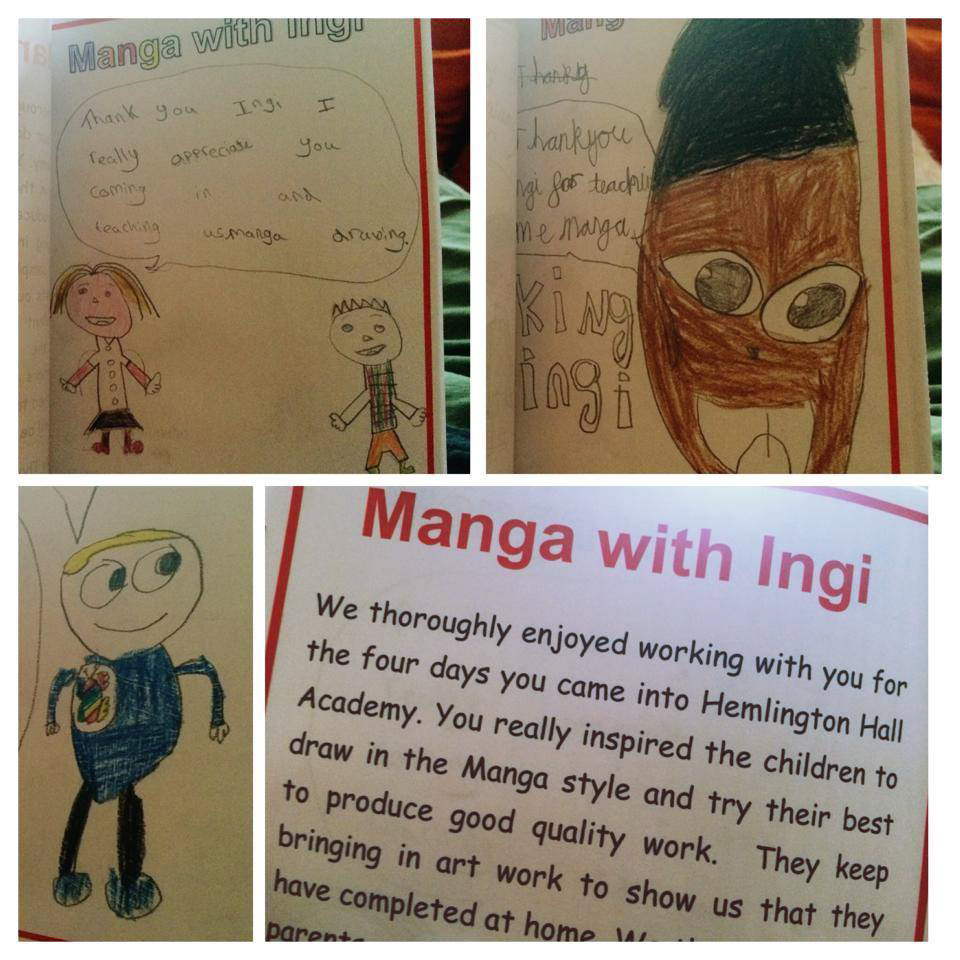 Manga with Ingi
Thank you Ingi I
really appreciate you
coming in and
teaching us manga drawing.
Mang
Thanky
Thankyou
ngi for teachi
me Manga
King
ingi
Manga with Ingi
We thoroughly enjoyed working with you for
the four days you came into Hemlington Hall
Academy. You really inspired the children to
draw in the Manga style and try their best
to produce good quality work. They keep
bringing in art work to show us that they
have completed at home. W
parents